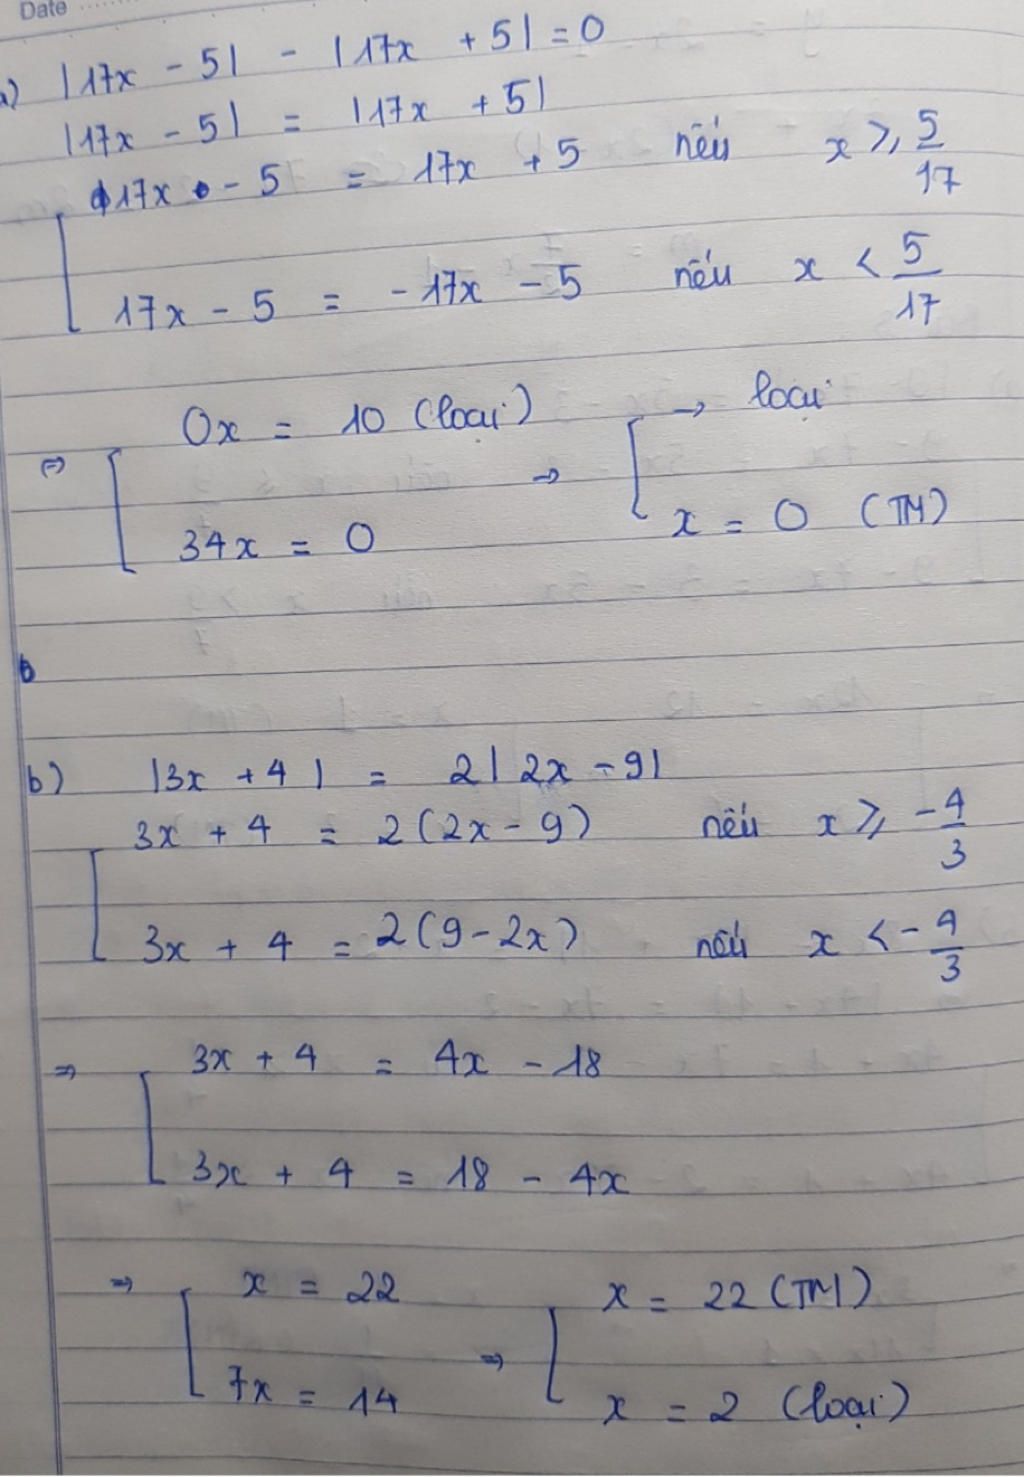 Date
a) |17x - 5| - |17x + 5| = 0
|17x - 5| = |17x + 5|
17x - 5 = 17x + 5 nếu x ⩾ 5/17
17x - 5 = -17x - 5 nếu x < 5/17
⇔ 0x = 10 (loại) → → loại
34x = 0 x = 0 (TM)
b) |3x + 4| = 2|2x - 9|
3x + 4 = 2(2x - 9) nếu x ⩾ -4/3
3x + 4 = 2(9 - 2x) nếu x < -4/3
⇒ 3x + 4 = 4x - 18
3x + 4 = 18 - 4x
⇒ x = 22 ⇒ x = 22 (TM)
7x = 14 x = 2 (loại)